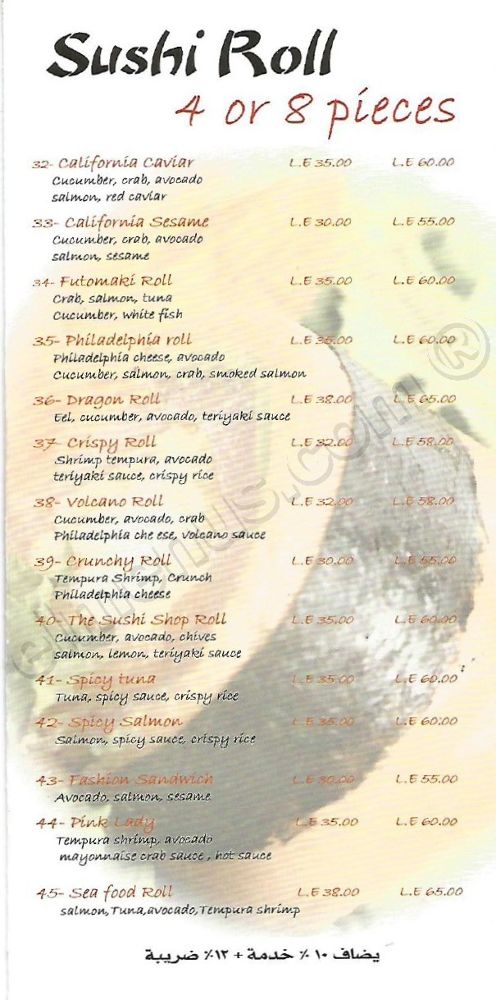 Sushi Roll
4 or 8 pieces
32- California Caviar L.E 35.00 L.E 60.00
Cucumber, crab, avocado
salmon, red caviar
33- California Sesame L.E 30.00 L.E 55.00
Cucumber, crab, avocado
salmon, sesame
34- Futomaki Roll L.E 35.00 L.E 60.00
Crab, salmon, tuna
Cucumber, white fish
35- Philadelphia roll L.E 35.00 L.E 60.00
Philadelphia cheese, avocado
Cucumber, salmon, crab, smoked salmon
36- Dragon Roll L.E 38.00 L.E 65.00
Eel, cucumber, avocado, teriyaki sauce
37- Crispy Roll L.E 32.00 L.E 58.00
Shrimp tempura, avocado
teriyaki sauce, crispy rice
38- Volcano Roll L.E 32.00 L.E 58.00
Cucumber, avocado, crab
Philadelphia che ese, volcano sauce
39- Crunchy Roll L.E 30.00 L.E 55.00
Tempura Shrimp, Crunch
Philadelphia cheese
40- The Sushi Shop Roll L.E 35.00 L.E 60.00
Cucumber, avocado, chives
salmon, lemon, teriyaki sauce
41- Spicy tuna L.E 35.00 L.E 60.00
Tuna, spicy sauce, crispy rice
42- Spicy Salmon L.E 35.00 L.E 60.00
Salmon, spicy sauce, crispy rice
43- Fashion Sandwich L.E 30.00 L.E 55.00
Avocado, salmon, sesame
44- Pink Lady L.E 35.00 L.E 60.00
Tempura shrimp, avocado
mayonnaise crab sauce , hot sauce
45- Sea food Roll L.E 38.00 L.E 65.00
salmon,Tuna,avocado,Tempura shrimp
يضاف ١٠ ٪ خدمة + ١٢٪ ضريبة